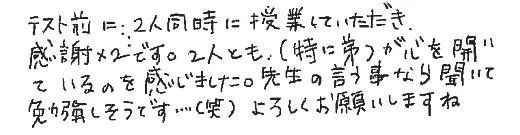 テスト前に、2人同時に授業していただき、
感謝×2です。2人とも、(特に弟)が心を開い
ているのを感じました。先生の言う事なら聞いて
勉強しそうです…(笑) よろしくお願いしますね